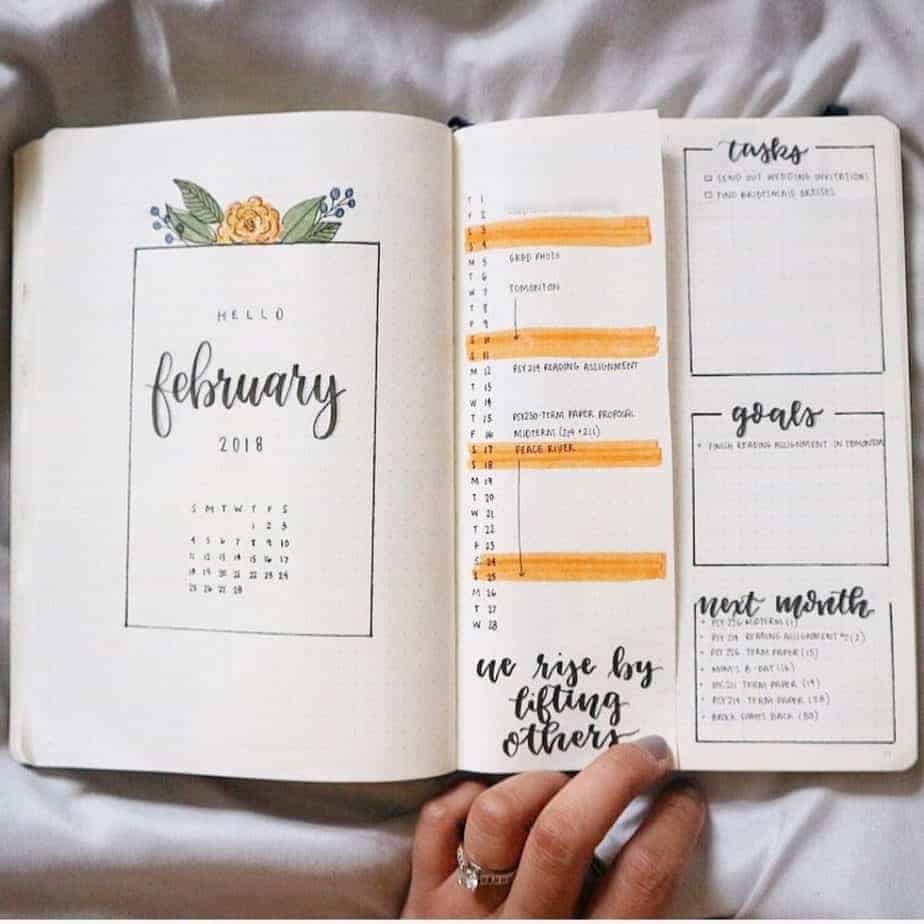 HELLO
february
2018
S M T W T F S
1 2 3
4 5 6 7 8 9 10
11 12 13 14 15 16 17
18 19 20 21 22 23 24
25 26 27 28
T 1
F 2
S 3
S 4
M 5 GRAD PHOTO
T 6
W 7 EDMONTON
T 8
F 9
S 10
S 11
M 12 PSY 219 READING ASSIGNMENT
T 13
W 14
T 15 TERM PAPER PROPOSAL
F 16 MIDTERM
S 17 PEACE RIVER
S 18
M 19
T 20
W 21
T 22
F 23
S 24
S 25
M 26
T 27
W 28
we rise by
lifting
others
tasks
SEND OUT WEDDING INVITATIONS
FIND BRIDESMAIDS DRESSES
goals
FINISH READING ASSIGNMENT IN EDMONTON
next month
MIDTERM (1)
PSY 219 READING ASSIGNMENT #2 (2)
TERM PAPER (15)
MOM'S B-DAY (16)
TERM PAPER (19)
PSY 219 TERM PAPER
BROCK COMES BACK (30)